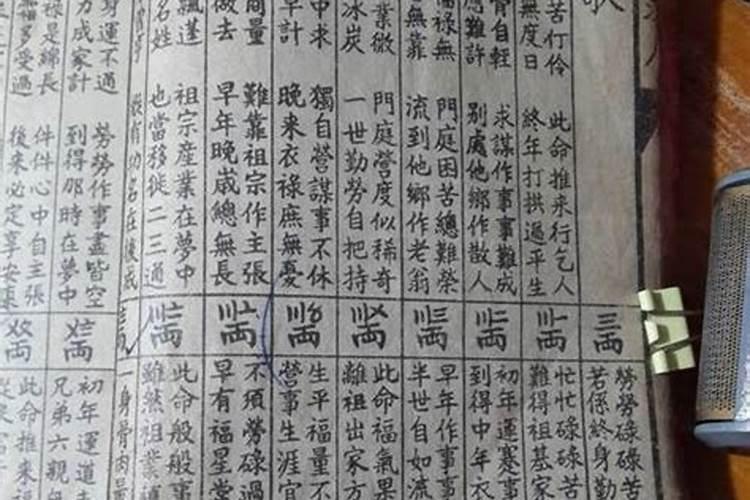 歌
苦仃伶
無度日
此命推来行乞人
終年打拱過平生
骨自輕
應難許
求謀作事事難成
别處他鄉作散人
福禄無
無靠
門庭困苦總難榮
流到他鄉作老翁
業微
冰炭
門庭營度似稀奇
一世勤勞自把持
中求
早計
獨自營謀事不休
晚来衣禄庶無憂
商量
做去
難靠祖宗作主張
早年晚歲總無長
飄蓬
名姓
祖宗産業在夢中
也當移徙二三通
身運不通
力成家計
勞勞作事盡皆空
到得那時在夢中
禄是綿長
多受過
件件心中自主張
後来必定享安康
三両
勞勞碌碌苦
若係終身勤
忙忙碌碌苦
難得祖基家
初年運蹇事
到得中年衣
早年作事事
半世自如流
此命福氣果
離祖出家方
生平福量不
營事生涯宜
不須勞碌過
早有福星堂
此命般般事
雖然祖業
一身骨肉
初年運道
兄弟六親
此命推来福